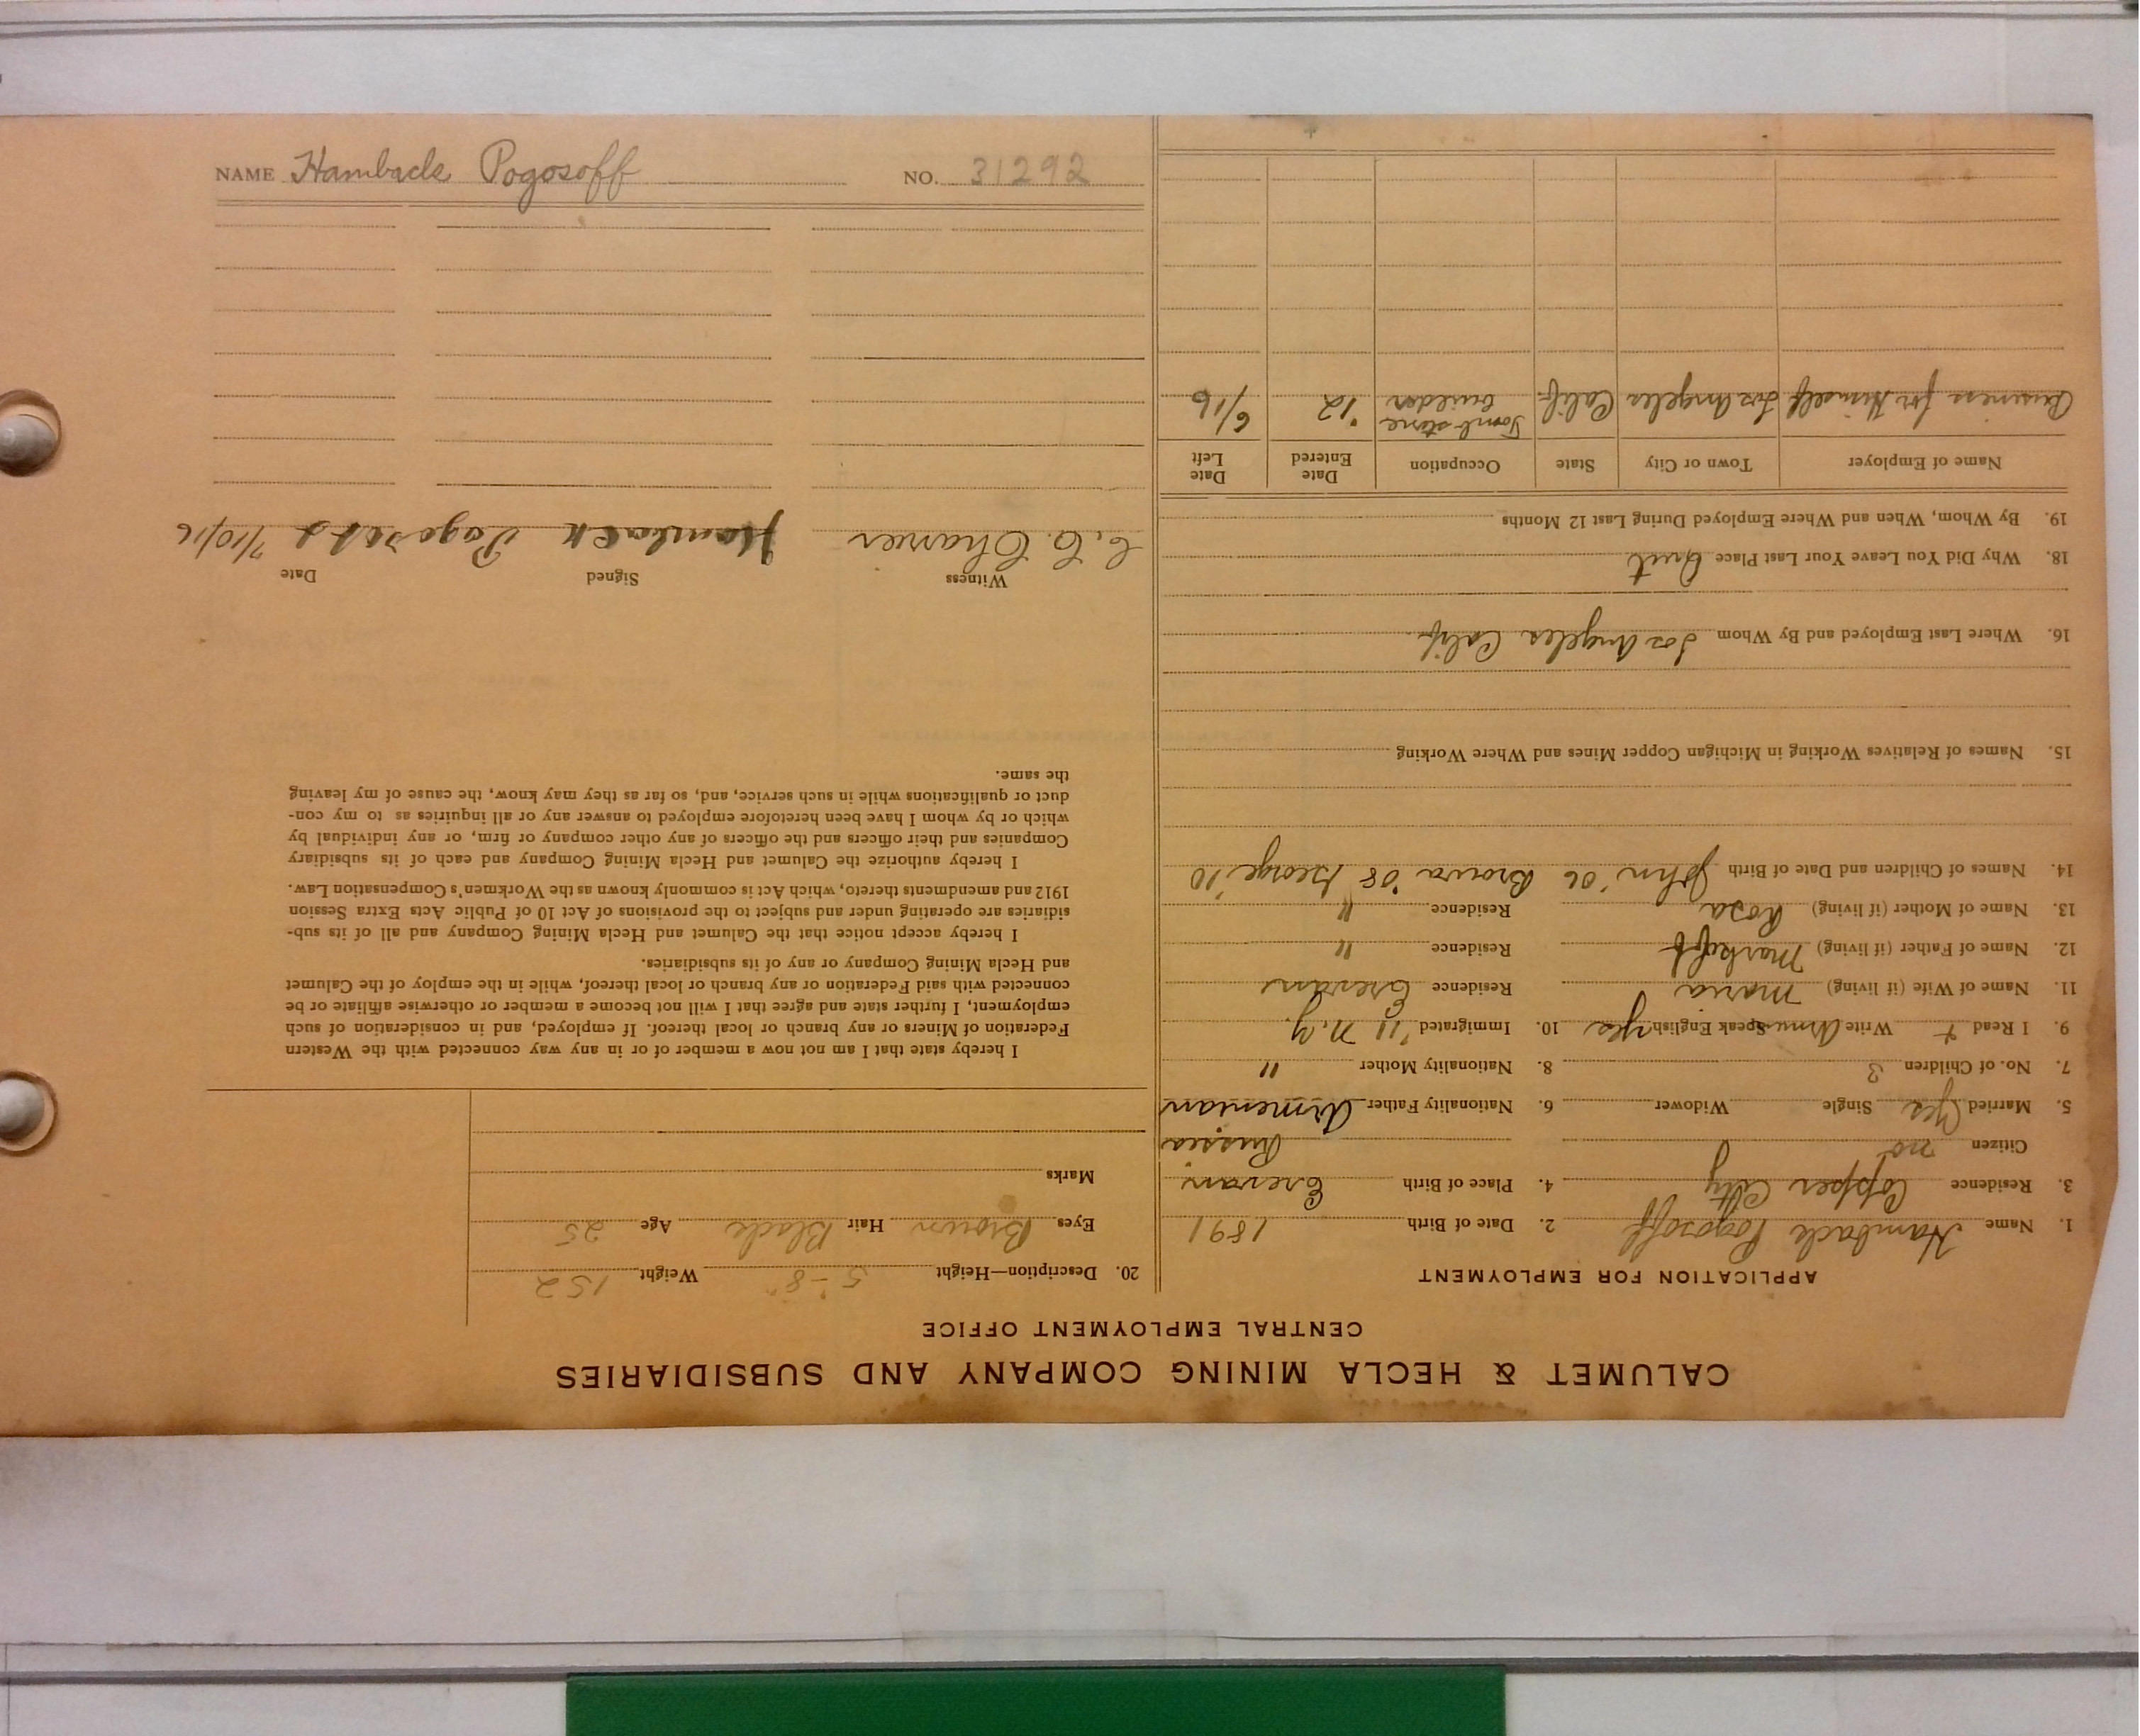 CALUMET & HECLA MINING COMPANY AND SUBSIDIARIES
CENTRAL EMPLOYMENT OFFICE
APPLICATION FOR EMPLOYMENT
1. Name Hamback Pogosoff 2. Date of Birth 1891
3. Residence Copper City 4. Place of Birth Erevan
Citizen no Russia
5. Married Yes Single Widower 6. Nationality Father Armenian
7. No. of Children 3 8. Nationality Mother "
9. I Read + Write Armn Speak English yes 10. Immigrated '11 N.Y.
11. Name of Wife (if living) Maria Residence Erevan
12. Name of Father (if living) Residence "
13. Name of Mother (if living) Rosa Residence "
14. Names of Children and Date of Birth John '06 '08 George '10
15. Names of Relatives Working in Michigan Copper Mines and Where Working
16. Where Last Employed and By Whom Los Angeles Calif.
18. Why Did You Leave Your Last Place Quit
19. By Whom, When and Where Employed During Last 12 Months
Name of Employer Town or City State Occupation Date Entered Date Left
Business for Himself Los Angeles Calif. Tomb-stone builder '12 6/16
20. Description—Height 5-8" Weight 152
Eyes Brown Hair Black Age 25
Marks
I hereby state that I am not now a member of or in any way connected with the Western
Federation of Miners or any branch or local thereof. If employed, and in consideration of such
employment, I further state and agree that I will not become a member or otherwise affiliate or be
connected with said Federation or any branch or local thereof, while in the employ of the Calumet
and Hecla Mining Company or any of its subsidiaries.
I hereby accept notice that the Calumet and Hecla Mining Company and all of its sub-
sidiaries are operating under and subject to the provisions of Act 10 of Public Acts Extra Session
1912 and amendments thereto, which Act is commonly known as the Workmen's Compensation Law.
I hereby authorize the Calumet and Hecla Mining Company and each of its subsidiary
Companies and their officers and the officers of any other company or firm, or any individual by
which or by whom I have been heretofore employed to answer any or all inquiries as to my con-
duct or qualifications while in such service, and, so far as they may know, the cause of my leaving
the same.
Witness Signed Date
C. C. Hamback 7/10/16
NAME Hamback Pogosoff NO. 31292